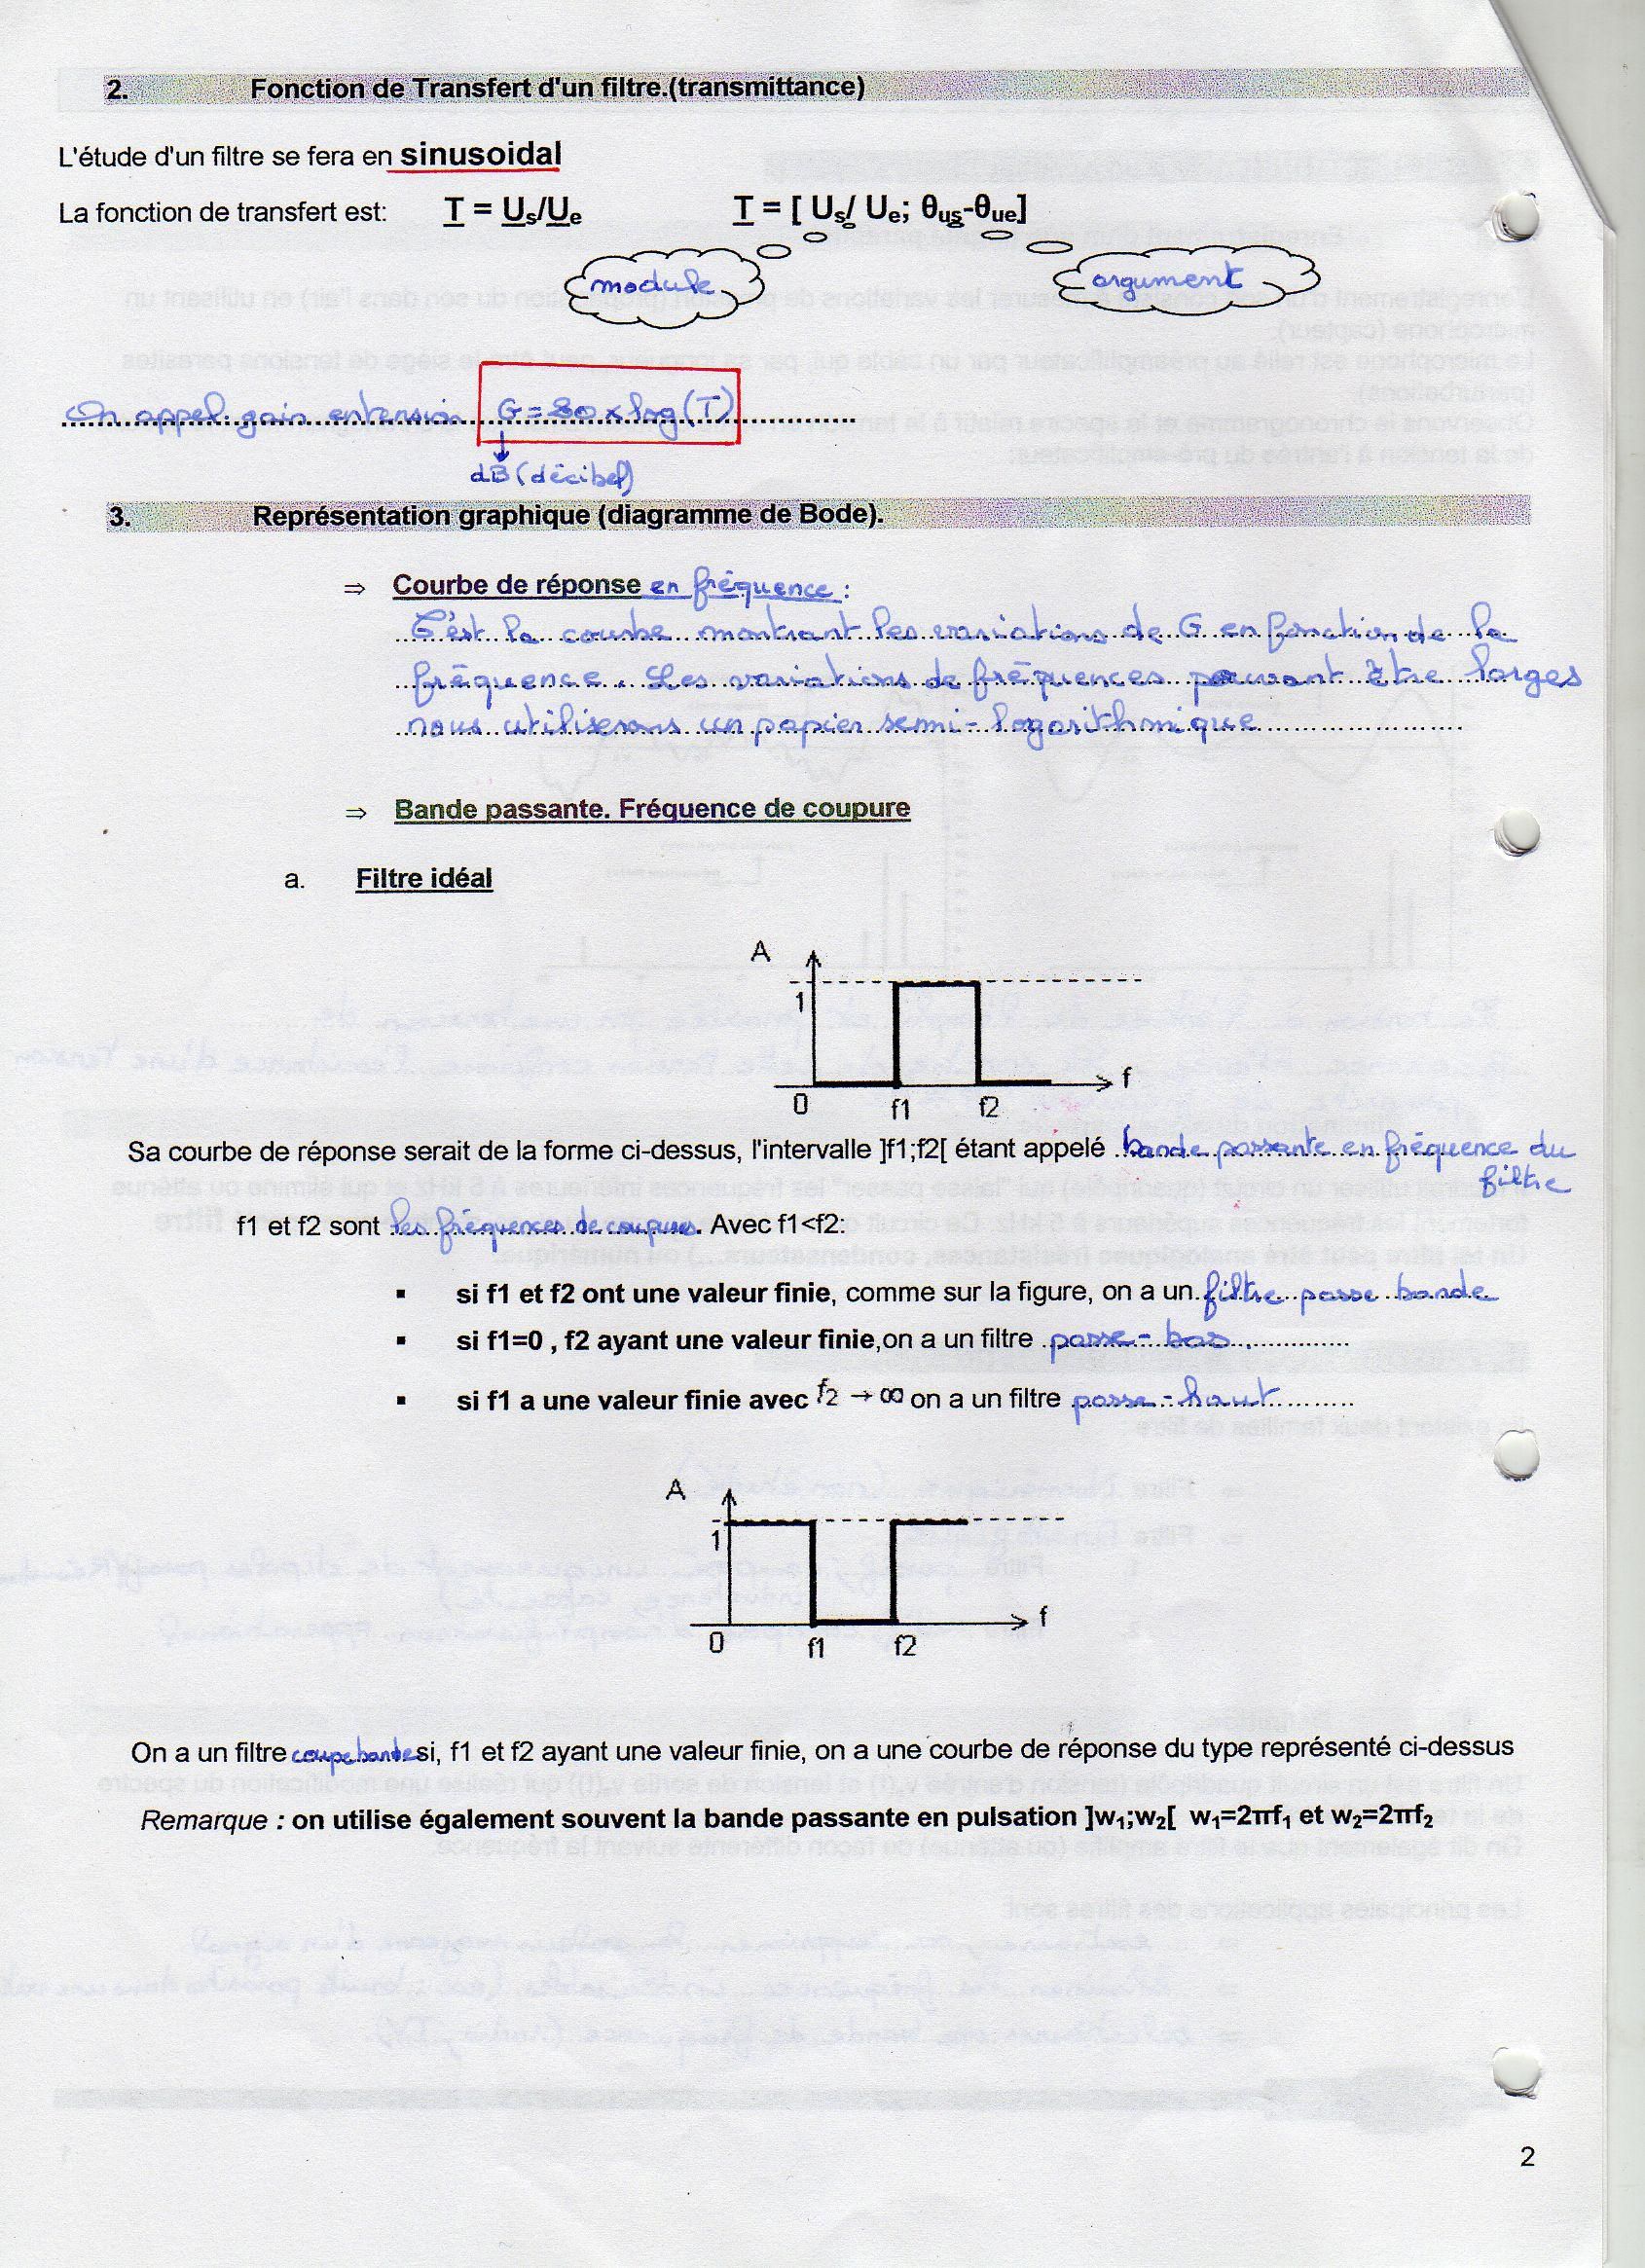 2. Fonction de Transfert d'un filtre.(transmittance)
L'étude d'un filtre se fera en sinusoidal
La fonction de transfert est: T = Us/Ue T = [ Us/ Ue; θus-θue]
module argument
On appel gain entension G = 20 x log(T)
dB (décibel)
3. Représentation graphique (diagramme de Bode).
⇒ Courbe de réponse en fréquence :
C'est la courbe montrant les variations de G en fonction de la
fréquence. Les variations de fréquences pouvant être larges
nous utiliserons un papier semi-logarithmique
⇒ Bande passante. Fréquence de coupure
a. Filtre idéal
A
1
f
0 f1 f2
Sa courbe de réponse serait de la forme ci-dessus, l'intervalle ]f1;f2[ étant appelé bande passante en fréquence du
filtre
f1 et f2 sont les fréquences de coupures. Avec f1<f2:
▪ si f1 et f2 ont une valeur finie, comme sur la figure, on a un filtre passe bande
▪ si f1=0 , f2 ayant une valeur finie,on a un filtre passe-bas.
▪ si f1 a une valeur finie avec f2 → ∞ on a un filtre passe-haut
A
1
f
0 f1 f2
On a un filtre coupe bande si, f1 et f2 ayant une valeur finie, on a une courbe de réponse du type représenté ci-dessus
Remarque : on utilise également souvent la bande passante en pulsation ]w₁;w₂[ w₁=2πf₁ et w₂=2πf₂
2